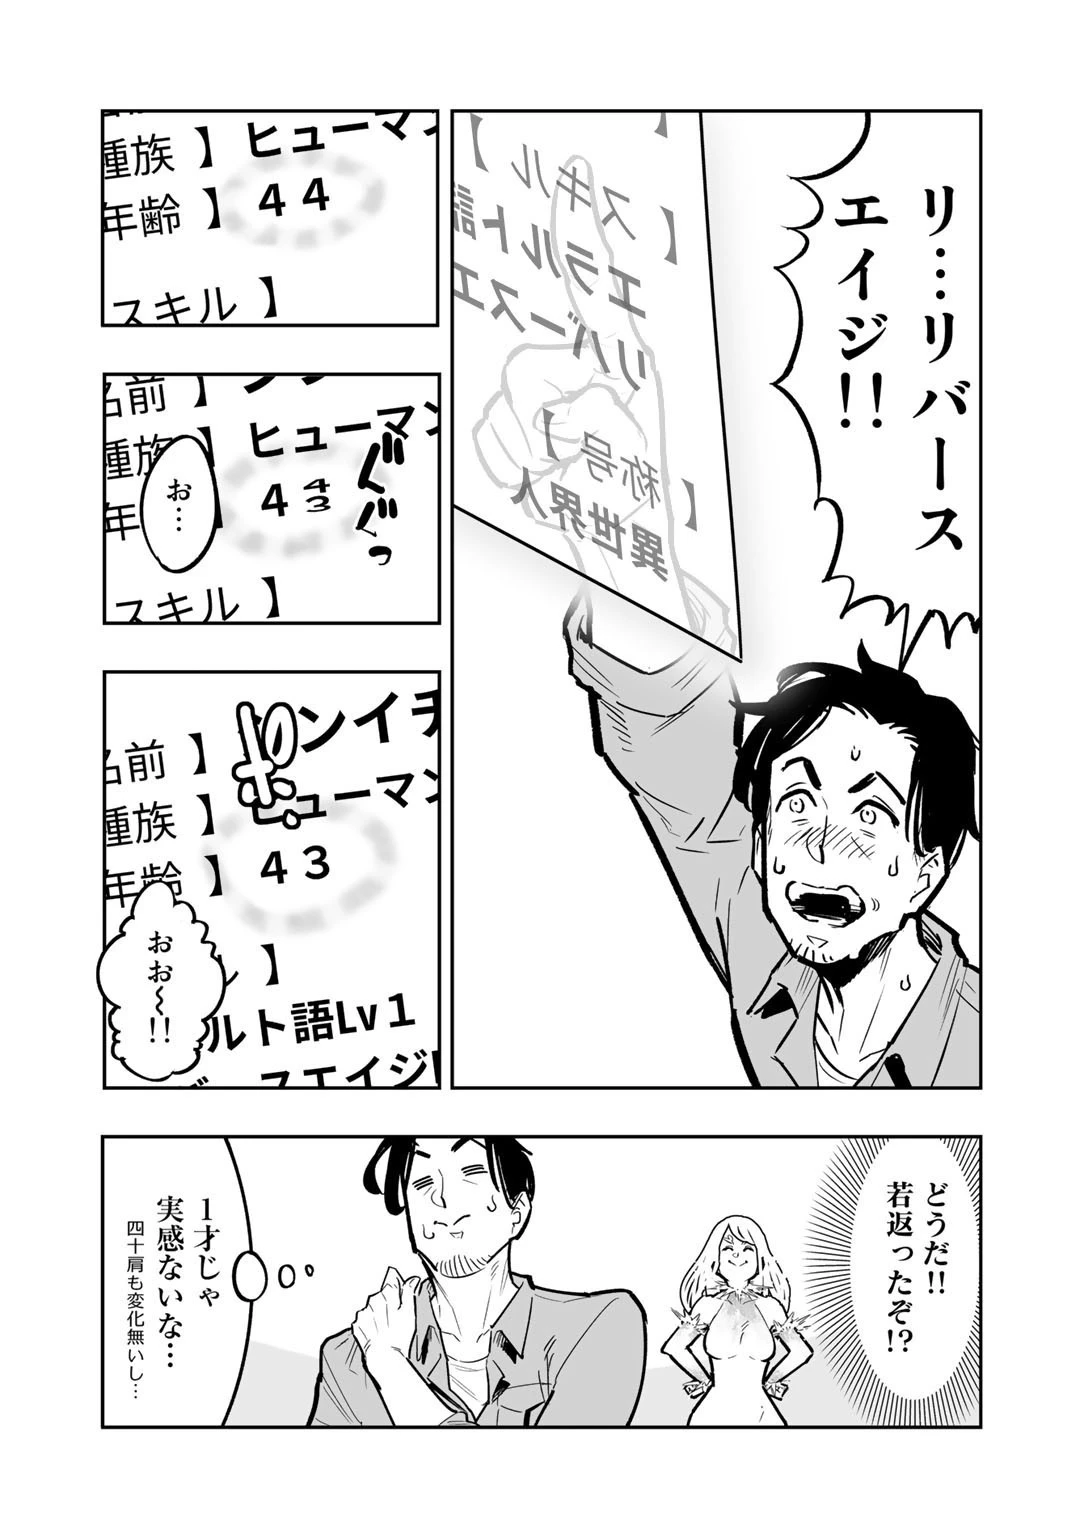 リ…リバース
エイジ!!
【スキル】
エラルト語
リバースエ
【称号】
異世界人
種族】ヒューマン
年齢】44
スキル】
名前】
種族】ヒューマン
年
4 4 3
スキル】
ぐんぐっ
お…
ンイチ
名前】
種族】ヒューマン
年齢】43
ル】
ルト語Lv1
スエイジ
ポ。
おお〜!!
どうだ!!
若返ったぞ!?
1才じゃ
実感ないな…
四十肩も変化無いし…